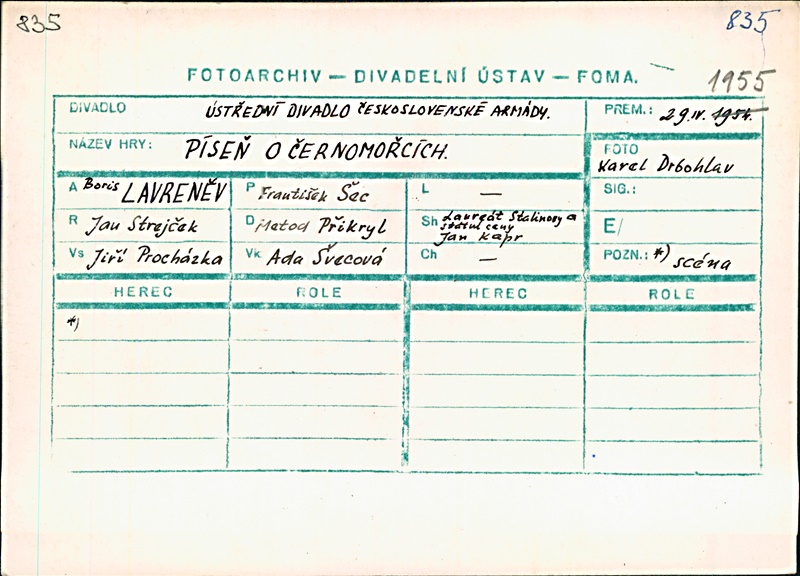 835
835
FOTOARCHIV — DIVADELNÍ ÚSTAV — FOMA.
1955
DIVADLO ÚSTŘEDNÍ DIVADLO ČESKOSLOVENSKÉ ARMÁDY. PREM.: 29.IV. 1954.
NÁZEV HRY: PÍSEŇ O ČERNOMOŘCÍCH. FOTO Karel Drbohlav
A Boris LAVRENĚV P František Šec L — SIG.:
R Jan Strejček D Metod Přikryl Sh Laureát Stalinovy a státní ceny Jan Kapr E/
Vs Jiří Procházka Vk Ada Švecová Ch — POZN.: *) scéna
HEREC ROLE HEREC ROLE
*)